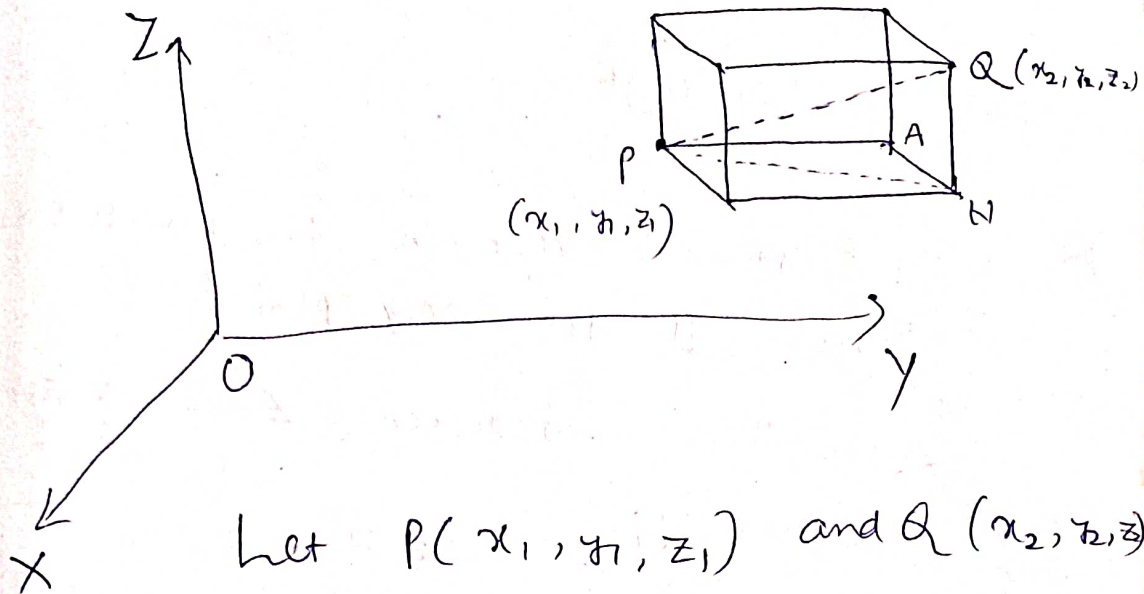 Z
Q (x₂, y₂, z₂)
A
P
(x₁, y₁, z₁)
N
O
Y
X
Let P(x₁, y₁, z₁) and Q (x₂, y₂, z)